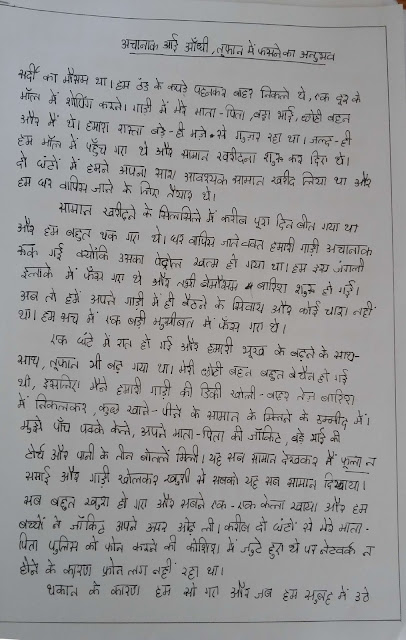 अचानक आई आँधी, तूफान में फसने का अनुभव
सर्दी का मौसम था। हम ठंड के कपड़े पहनकर बाहर निकले थे, एक दूर के
मॉल में शॉपिंग करने। गाड़ी में मेरे माता-पिता, बड़ा भाई, छोटी बहन
और मैं थे। हमारा रास्ता बड़े-ही मज़े से गुज़र रहा था। जल्द-ही
हम मॉल में पहुँच गए थे और सामान खरीदना शुरू कर दिए थे।
दो घंटों में हमने अपना सारा आवश्यक सामान खरीद लिया था और
हम घर वापिस जाने के लिए तैयार थे।
सामान खरीदने के सिलसिले में करीब पूरा दिन बीत गया था
और हम बहुत थक गए थे। घर वापिस जाते वक्त हमारी गाड़ी अचानक
रुक गई क्योंकि उसका पेट्रोल खत्म हो गया था। हम इस जंगली
इलाके में फँस गए थे और तभी बेमौसम बारिश शुरू हो गई।
अब तो हमें अपने गाड़ी में ही बैठने के सिवाय और कोई चारा नहीं
था। हम सच में एक बड़ी मुसीबत में फँस गए थे।
एक घंटे में रात हो गई और हमारी भूख के बढ़ने के साथ-
साथ, तूफान भी बढ़ गया था। मेरी छोटी बहन बहुत बेचैन हो गई
थी, इसलिए मैंने हमारी गाड़ी की डिकी खोली-बाहर तेज़ बारिश
में निकलकर, कुछ खाने-पीने के सामान के मिलने के उम्मीद में।
मुझे पाँच पक्के केले, अपने माता-पिता की जॉकिट, बड़े भाई की
टॉर्च और पानी के तीन बोतलें मिली। यह सब सामान देखकर मैं फूला न
समाई और गाड़ी खोलकर खुशी से सबको यह सब सामान दिखाया।
सब बहुत खुश हो गए और सबने एक-एक केला खाया और हम
बच्चों ने जॉकिट अपने ऊपर ओढ़ ली। करीब दो घंटों से मेरे माता-
पिता पुलिस को फोन करने की कोशिश में जुटे हुए थे पर नेटवर्क न
होने के कारण फोन लग नहीं रहा था।
थकान के कारण हम सो गए और जब हम सुबह में उठे